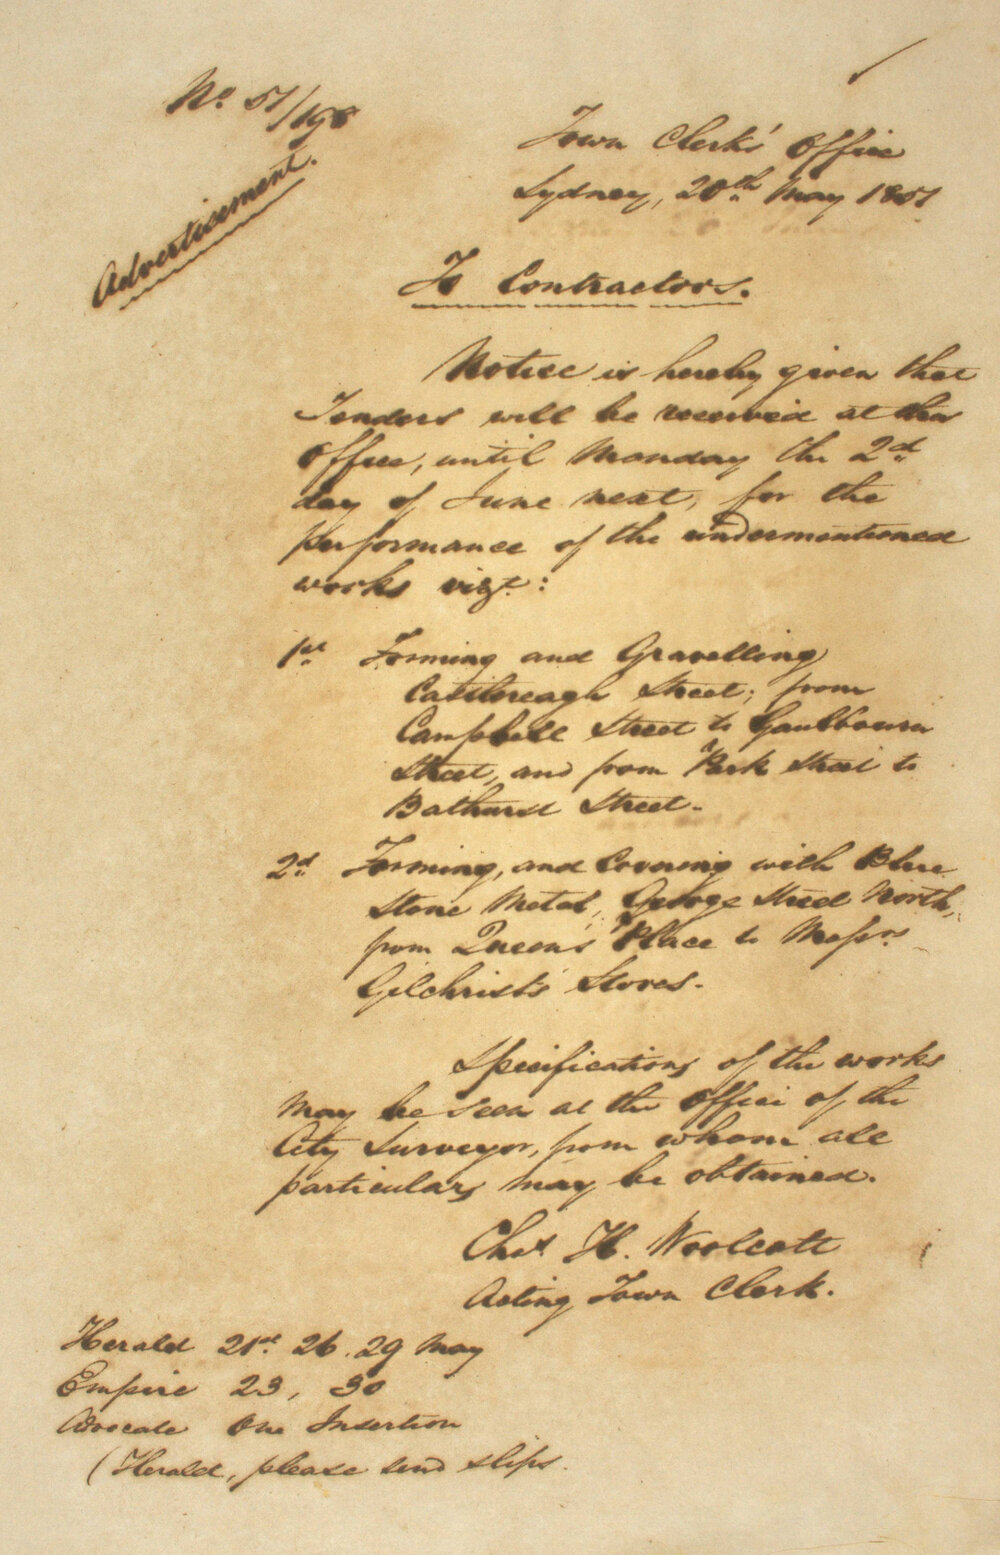 No. 51/198
Advertisement.
Town Clerk's Office
Sydney, 20th May 1851
To Contractors.
Notice is hereby given that
Tenders will be received at this
Office, until Monday the 2d
day of June next, for the
performance of the undermentioned
works vizt:
1st Forming and Gravelling
Castlereagh Street; from
Campbell Street to Gaulbourn
Street, and from Park Street to
Bathurst Street.
2d Forming, and Covering with Blue
Stone Metal, George Street North,
from Queen's Place to Messrs
Gilchrist's Stores.
Specifications of the works
may be seen at the Office of the
City Surveyor, from whom all
particulars may be obtained.
Chas H. Woolcott
Acting Town Clerk.
Herald 21st 26. 29 May
Empire 23, 30
Advocate One Insertion
(Herald, please send slips.